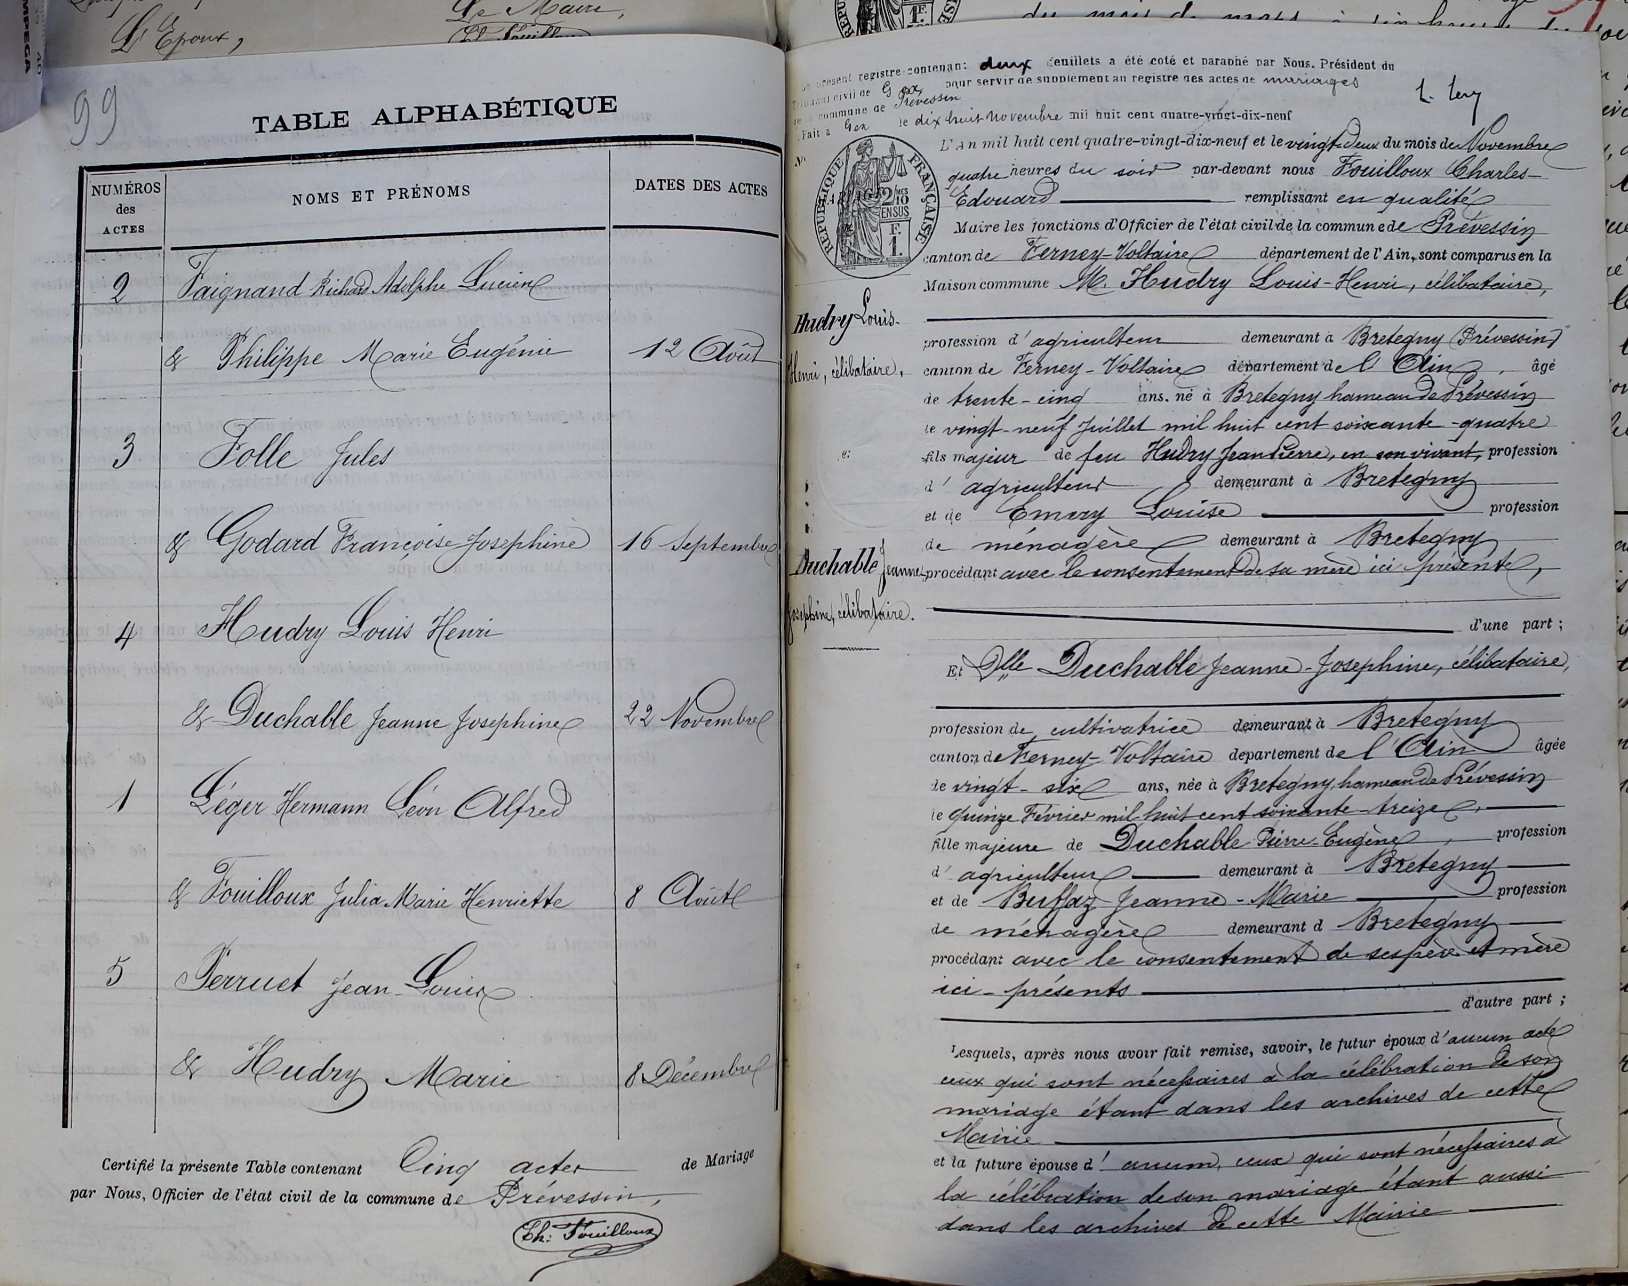 Le Maire,
L'Epoux,
99
TABLE ALPHABÉTIQUE
NUMÉROS des ACTES
NOMS ET PRÉNOMS
DATES DES ACTES
2 Faignand Richard Adolphe Lucien
& Philippe Marie Eugénie 12 Août
3 Folle Jules
& Godard Françoise Josephine 16 Septembre
4 Hudry Louis Henri
& Duchable Jeanne Josephine 22 Novembre
1 Léger Hermann Léon Alfred
& Fouilloux Julia Marie Henriette 8 Août
5 Perruet Jean-Louis
& Hudry Marie 8 Décembre
Certifié la présente Table contenant Cinq actes de Mariage
par Nous, Officier de l'état civil de la commune de Prévessin,
Ch: Fouilloux
Le présent registre contenant deux feuillets a été coté et paraphé par Nous, Président du
Tribunal civil de Gex, pour servir de supplément au registre des actes de mariages
de la commune de Prévessin
Fait à Gex le dix huit Novembre mil huit cent quatre-vingt-dix-neuf
RÉPUBLIQUE FRANÇAISE
2/10 EN SUS
F. 1.
L'An mil huit cent quatre-vingt-dix-neuf et le vingt-deux du mois de Novembre
quatre heures du soir par-devant nous Fouilloux Charles-
Edouard remplissant en qualité
Maire les fonctions d'Officier de l'état civil de la commune de Prévessin
canton de Ferney-Voltaire département de l'Ain, sont comparus en la
Maison commune M. Hudry Louis-Henri, célibataire,
Hudry Louis-
Henri, célibataire,
profession d'agriculteur demeurant à Bretegny (Prévessin)
canton de Ferney-Voltaire département de l'Ain, âgé
de trente-cinq ans, né à Bretegny hameau de Prévessin
le vingt-neuf Juillet mil huit cent soixante-quatre
fils majeur de feu Hudry Jean Pierre, en son vivant, profession
d'agriculteur demeurant à Bretegny
et de Emery Louise profession
de ménagère demeurant à Bretegny
et
Duchable Jeanne-
Josephine, célibataire.
procédant avec le consentement de sa mère ici présente,
d'une part;
Et Dlle Duchable Jeanne-Josephine, célibataire,
profession de cultivatrice demeurant à Bretegny
canton de Ferney-Voltaire département de l'Ain âgée
de vingt-six ans, née à Bretegny, hameau de Prévessin
le quinze Février mil huit cent soixante-treize,
fille majeure de Duchable Pierre-Eugène, profession
d'agriculteur demeurant à Bretegny
et de Buffaz Jeanne-Marie profession
de ménagère demeurant à Bretegny
procédant avec le consentement de ses père et mère
ici-présents
d'autre part;
Lesquels, après nous avoir fait remise, savoir, le futur époux d'aucun acte
ceux qui sont nécessaires à la célébration de son
mariage étant dans les archives de cette
Mairie
et la future épouse d'aucun, ceux qui sont nécessaires à
la célébration de son mariage étant aussi
dans les archives de cette Mairie